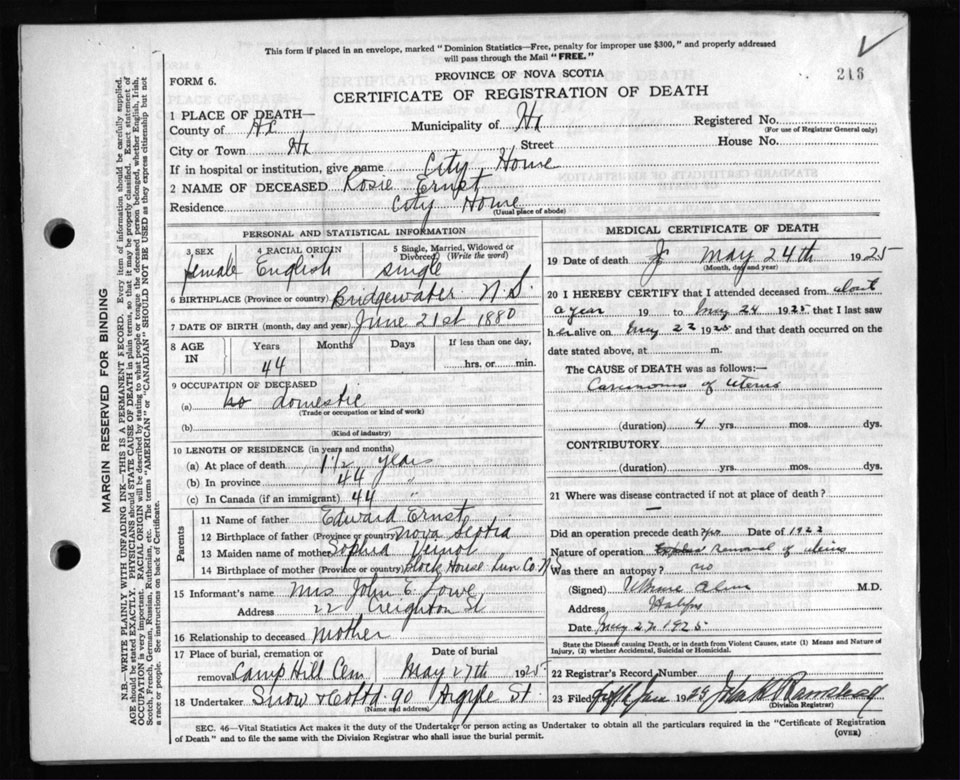 This form if placed in an envelope, marked "Dominion Statistics—Free, penalty for improper use $300," and properly addressed
will pass through the Mail "FREE."
216
FORM 6.
PROVINCE OF NOVA SCOTIA
CERTIFICATE OF REGISTRATION OF DEATH
1 PLACE OF DEATH—
County of Hx Municipality of Hx Registered No.
(For use of Registrar General only)
City or Town Hx Street House No.
If in hospital or institution, give name City Home
2 NAME OF DECEASED Rosie Ernst
Residence City Home
(Usual place of abode)
MARGIN RESERVED FOR BINDING
N.B.—WRITE PLAINLY WITH UNFADING INK—THIS IS A PERMANENT RECORD. Every item of information should be carefully supplied.
AGE should be stated EXACTLY. PHYSICIANS should STATE CAUSE OF DEATH in plain terms, so that it may be properly classified. Exact statement of
OCCUPATION is very important. RACIAL ORIGIN will be described by stating to what people or tongue the deceased person belonged, whether English, Irish,
Scotch, French, German, Russian, Ruthenian, etc. The terms "AMERICAN" or "CANADIAN" SHOULD NOT BE USED as they express citizenship but not
a race or people. See instructions on back of Certificate.
PERSONAL AND STATISTICAL INFORMATION
3 SEX 4 RACIAL ORIGIN 5 Single, Married, Widowed or
Divorced (Write the word)
female English single
6 BIRTHPLACE (Province or country) Bridgewater N.S.
7 DATE OF BIRTH (month, day and year) June 21st 1880
8 AGE IN Years Months Days If less than one day,
44 hrs. or min.
9 OCCUPATION OF DECEASED
(a) domestic
(Trade or occupation or kind of work)
(b)
(Kind of industry)
10 LENGTH OF RESIDENCE (in years and months)
(a) At place of death 1 1/2 years
(b) In province 44 "
(c) In Canada (if an immigrant) 44 "
Parents
11 Name of father Edward Ernst
12 Birthplace of father (Province or country) Nova Scotia
13 Maiden name of mother Sophia
14 Birthplace of mother (Province or country) Block House Lun Co. N.S
15 Informant's name Mrs John E. Lowe
Address 22 Creighton St
16 Relationship to deceased mother
17 Place of burial, cremation or removal Date of burial
Camp Hill Cem May 27th 1925
18 Undertaker Snow & Co Ltd 90 Argyle St.
(Name and address)
MEDICAL CERTIFICATE OF DEATH
19 Date of death May 24th 1925
(Month, day and year)
20 I HEREBY CERTIFY that I attended deceased from about
a year 19 to May 24 1925 that I last saw
her alive on May 22 1925 and that death occurred on the
date stated above, at m.
The CAUSE of DEATH was as follows:—
Carcinoma of Uterus
(duration) 4 yrs. mos. dys.
CONTRIBUTORY
(duration) yrs. mos. dys.
21 Where was disease contracted if not at place of death?
—
Did an operation precede death? yes Date of 1922
Nature of operation Removal of uterus
Was there an autopsy? no
(Signed) M.D.
Address Halifax
Date May 27 1925
State the Disease causing Death, or in Death from Violent Causes, state (1) Means and Nature of
Injury, (2) whether Accidental, Suicidal or Homicidal.
22 Registrar's Record Number
23 Filed June 1925
(Division Registrar)
SEC. 46—Vital Statistics Act makes it the duty of the Undertaker or person acting as Undertaker to obtain all the particulars required in the "Certificate of Registration
of Death" and to file the same with the Division Registrar who shall issue the burial permit.
(OVER)